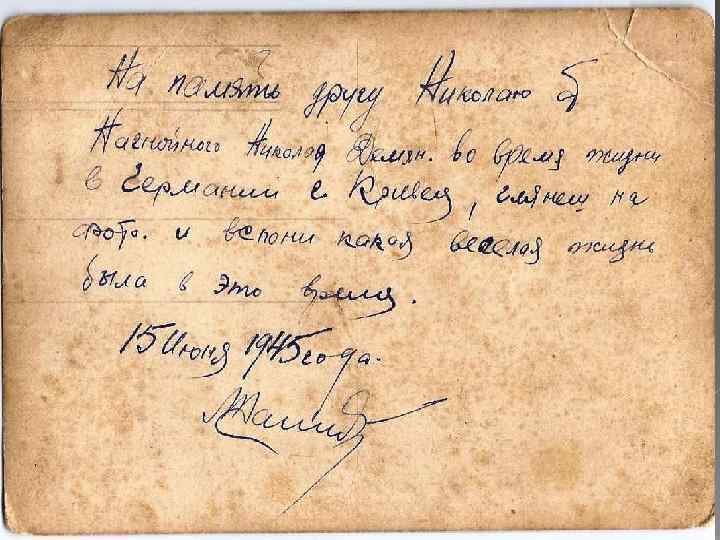 На память другу Николаю от
Нагнойного Николая Демян. во время жизни
в Германии г. Кривец, глянеш на
фото. и вспони какая веселая жизнь
была в это время.
15 Июня 1945 года.